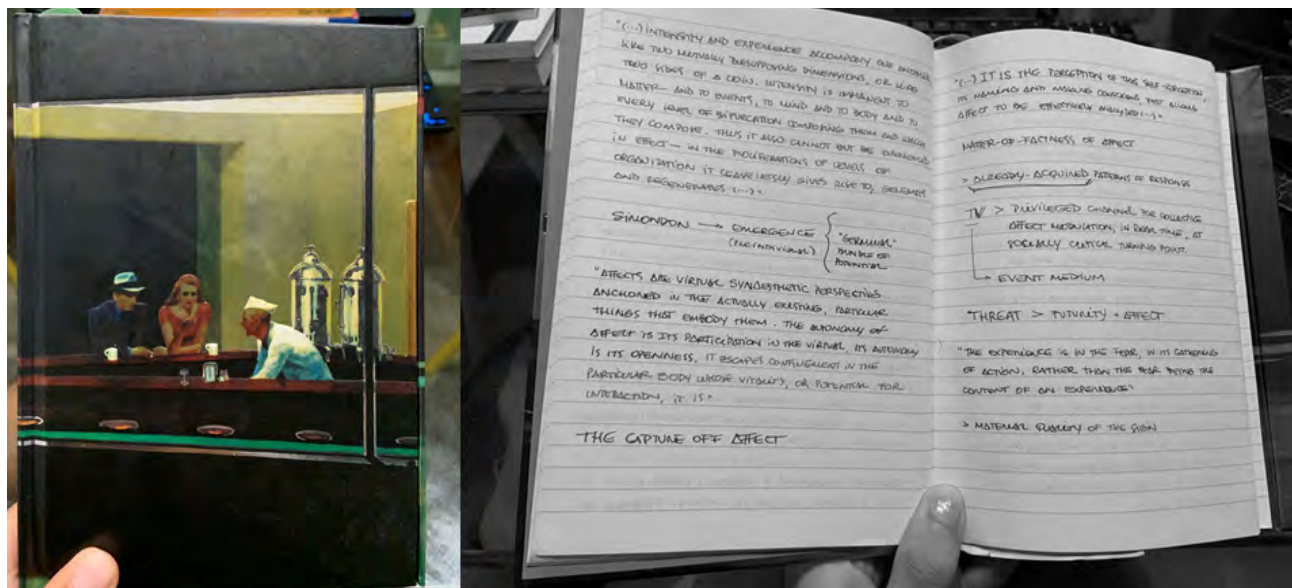 "(...) INTENSITY AND EXPERIENCE ACCOMPANY ONE ANOTHER
LIKE TWO MUTUALLY PRESUPPOSING DIMENSIONS, OR LIKE
TWO SIDES OF A COIN. INTENSITY IS IMMANENT TO
MATTER AND TO EVENTS, TO MIND AND TO BODY AND TO
EVERY LEVEL OF BIFURCATION COMPOSING THEM AND WHICH
THEY COMPOSE. THUS IT ALSO CANNOT BUT BE EXPERIENCED
IN EFFECT — IN THE PROLIFERATIONS OF LEVELS OF
ORGANIZATION IT CEASELESSLY GIVES RISE TO, GENERATES
AND REGENERATES (...)"
SIMONDON → EMERGENCE
(PREINDIVIDUAL)
"GERMINAL"
BUNDLE OF
POTENTIAL
"AFFECTS ARE VIRTUAL SYNAESTHETIC PERSPECTIVES
ANCHORED IN THE ACTUALLY EXISTING, PARTICULAR
THINGS THAT EMBODY THEM. THE AUTONOMY OF
AFFECT IS ITS PARTICIPATION IN THE VIRTUAL. ITS AUTONOMY
IS ITS OPENNESS. IT ESCAPES CONFINEMENT IN THE
PARTICULAR BODY WHOSE VITALITY, OR POTENTIAL FOR
INTERACTION, IT IS"
THE CAPTURE OFF AFFECT
"(...) IT IS THE PERCEPTION OF THIS SELF-PERCEPTION,
ITS NAMING AND MAKING CONSCIOUS, THAT ALLOWS
AFFECT TO BE EFFECTIVELY ANALYZED (...)"
MATER-OF-FACTNESS OF AFFECT
> ALREADY-ACQUIRED PATTERNS OF RESPONSE
TV > PRIVILEGED CHANNEL FOR COLLECTIVE
AFFECT MODULATION, IN REAL TIME, AT
SOCIALLY CRITICAL TURNING POINT.
→ EVENT MEDIUM
THREAT > FUTURITY + AFFECT
"THE EXPERIENCE IS IN THE FEAR, IN ITS GATHERING
OF ACTION, RATHER THAN THE FEAR BEING THE
CONTENT OF AN EXPERIENCE"
> MATERIAL QUALITY OF THE SIGN